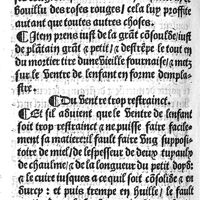 Bouilly des roses rouges / cela luy proffite
autant que toutes autres choses.
¶ Item prens iust de la grãt cõsoulde/iust
de plãtain grãt & petit / & destrẽpe le tout en
du mortier tire dune vieille fournaise / & metz
sur le ventre de lenfant en forme dempla-
stre.
¶ Du ventre trop restrainct.
¶ Et sil aduient que le ventre de lenfant
soit trop restrainct & ne puisse faire facile-
ment sa matiere il fault faire vng supposi-
toire de miel / de lespesseur de deux tuyaulx
de chaulme / & de la longueur du petit doy
& le cuire iusques a ce quil soit cõsolide & en
durcy : et puis trempe en huille / le fault